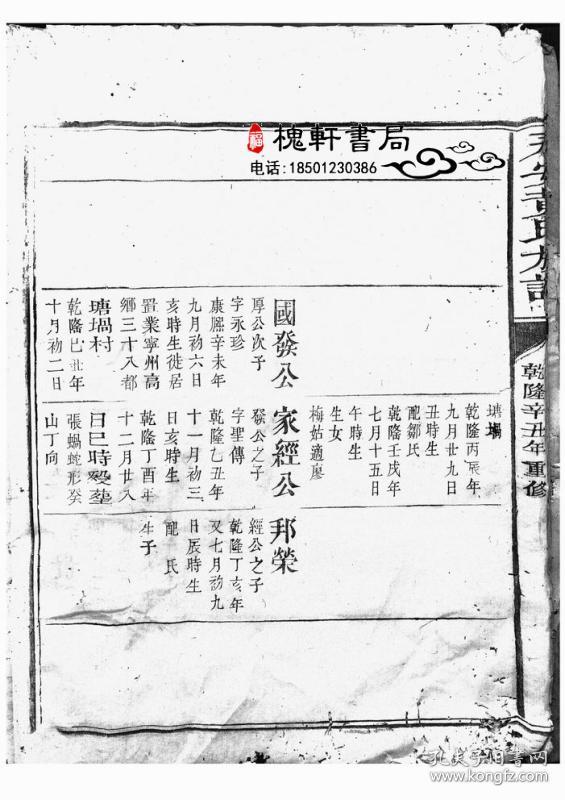 槐軒書局
电话:18501230386
乾隆辛丑年重修
塘塌
乾隆丙辰年
九月廿九日
丑時生
配鄒氏
乾隆壬戌年
七月十五日
午時生
生女
梅姑適廖
國發公
厚公次子
字永珍
康熈辛未年
九月初六日
亥時生徙居
置業寧州高
鄉三十八都
塘塌村
乾隆巳丑年
十月初二日
家經公
發公之子
字聖傳
乾隆乙丑年
十一月初三
日亥時生
乾隆丁酉年
十二月廿八
日巳時殁塟
張蝎蛇形癸
山丁向
邦榮
經公之子
乾隆丁亥年
又七月初九
日辰時生
配 氏
生子
孔夫子旧书网
www.kongfz.com